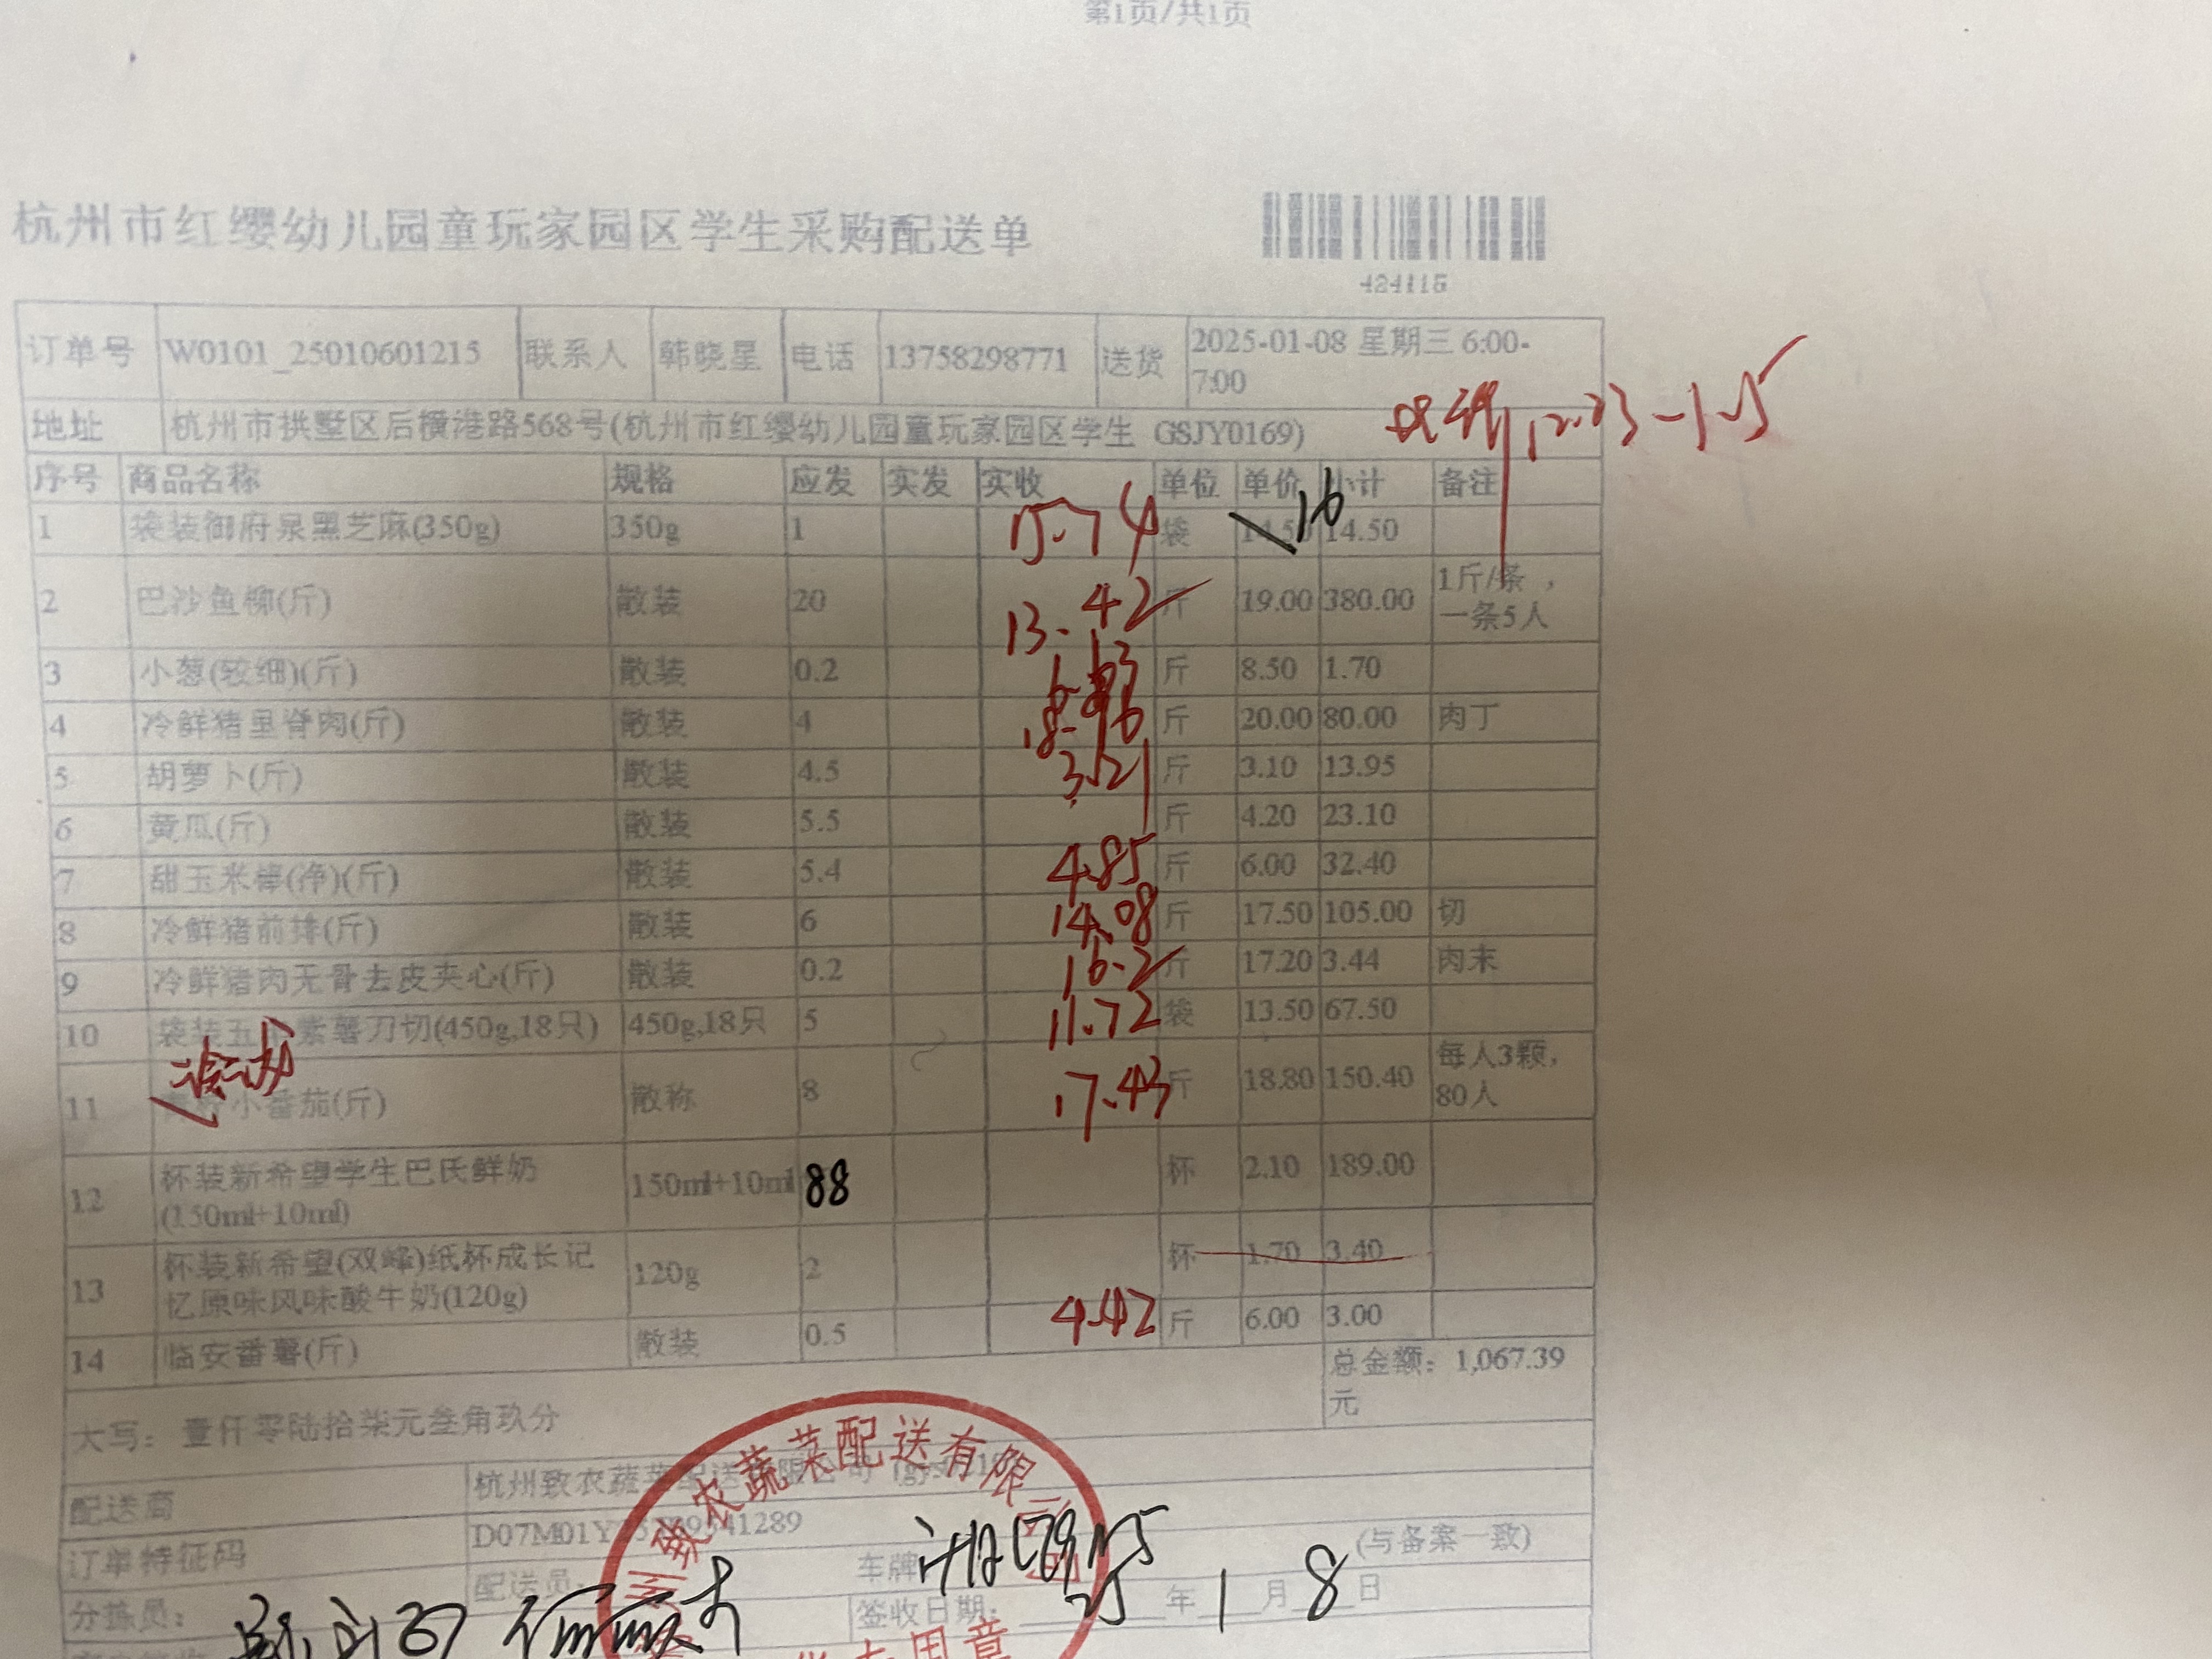 第1页/共1页
杭州市红缨幼儿园童玩家园区学生采购配送单
424115
订单号 W0101_25010601215 联系人 韩晓星 电话 13758298771 送货 2025-01-08 星期三 6:00-
7:00
地址 杭州市拱墅区后横港路568号(杭州市红缨幼儿园童玩家园区学生 GSJY0169)
12.23-1.5
序号 商品名称 规格 应发 实发 实收 单位 单价 小计 备注
1 袋装御府泉黑芝麻(350g) 350g 1 15.74 袋 14.50 16 14.50
2 巴沙鱼柳(斤) 散装 20 13.42 斤 19.00 380.00 1斤/条，
一条5人
3 小葱(较细)(斤) 散装 0.2 斤 8.50 1.70
4 冷鲜猪里脊肉(斤) 散装 4 18.16 斤 20.00 80.00 肉丁
5 胡萝卜(斤) 散装 4.5 3.21 斤 3.10 13.95
6 黄瓜(斤) 散装 5.5 斤 4.20 23.10
7 甜玉米棒(净)(斤) 散装 5.4 4.85 斤 6.00 32.40
8 冷鲜猪前排(斤) 散装 6 14.08 斤 17.50 105.00 切
9 冷鲜猪肉无骨去皮夹心(斤) 散装 0.2 16.2 斤 17.20 3.44 肉末
10 袋装五 紫薯刀切(450g,18只) 450g,18只 5 11.72 袋 13.50 67.50
11 小番茄(斤) 散称 8 17.43 斤 18.80 150.40 每人3颗，
80人
12 杯装新希望学生巴氏鲜奶
(150ml+10ml) 150ml+10ml 88 杯 2.10 189.00
13 杯装新希望(双峰)纸杯成长记
忆原味风味酸牛奶(120g) 120g 2 杯 1.70 3.40
14 临安番薯(斤) 散装 0.5 4.42 斤 6.00 3.00
总金额：1,067.39
元
大写：壹仟零陆拾柒元叁角玖分
配送商 杭州致农蔬菜配送有限公司
订单特征码 D07M01Y
分拣员： 配送员： 车牌 (与备案一致)
签收日期： 25 年 1 月 8 日
州致农蔬菜配送有限公司
专用章